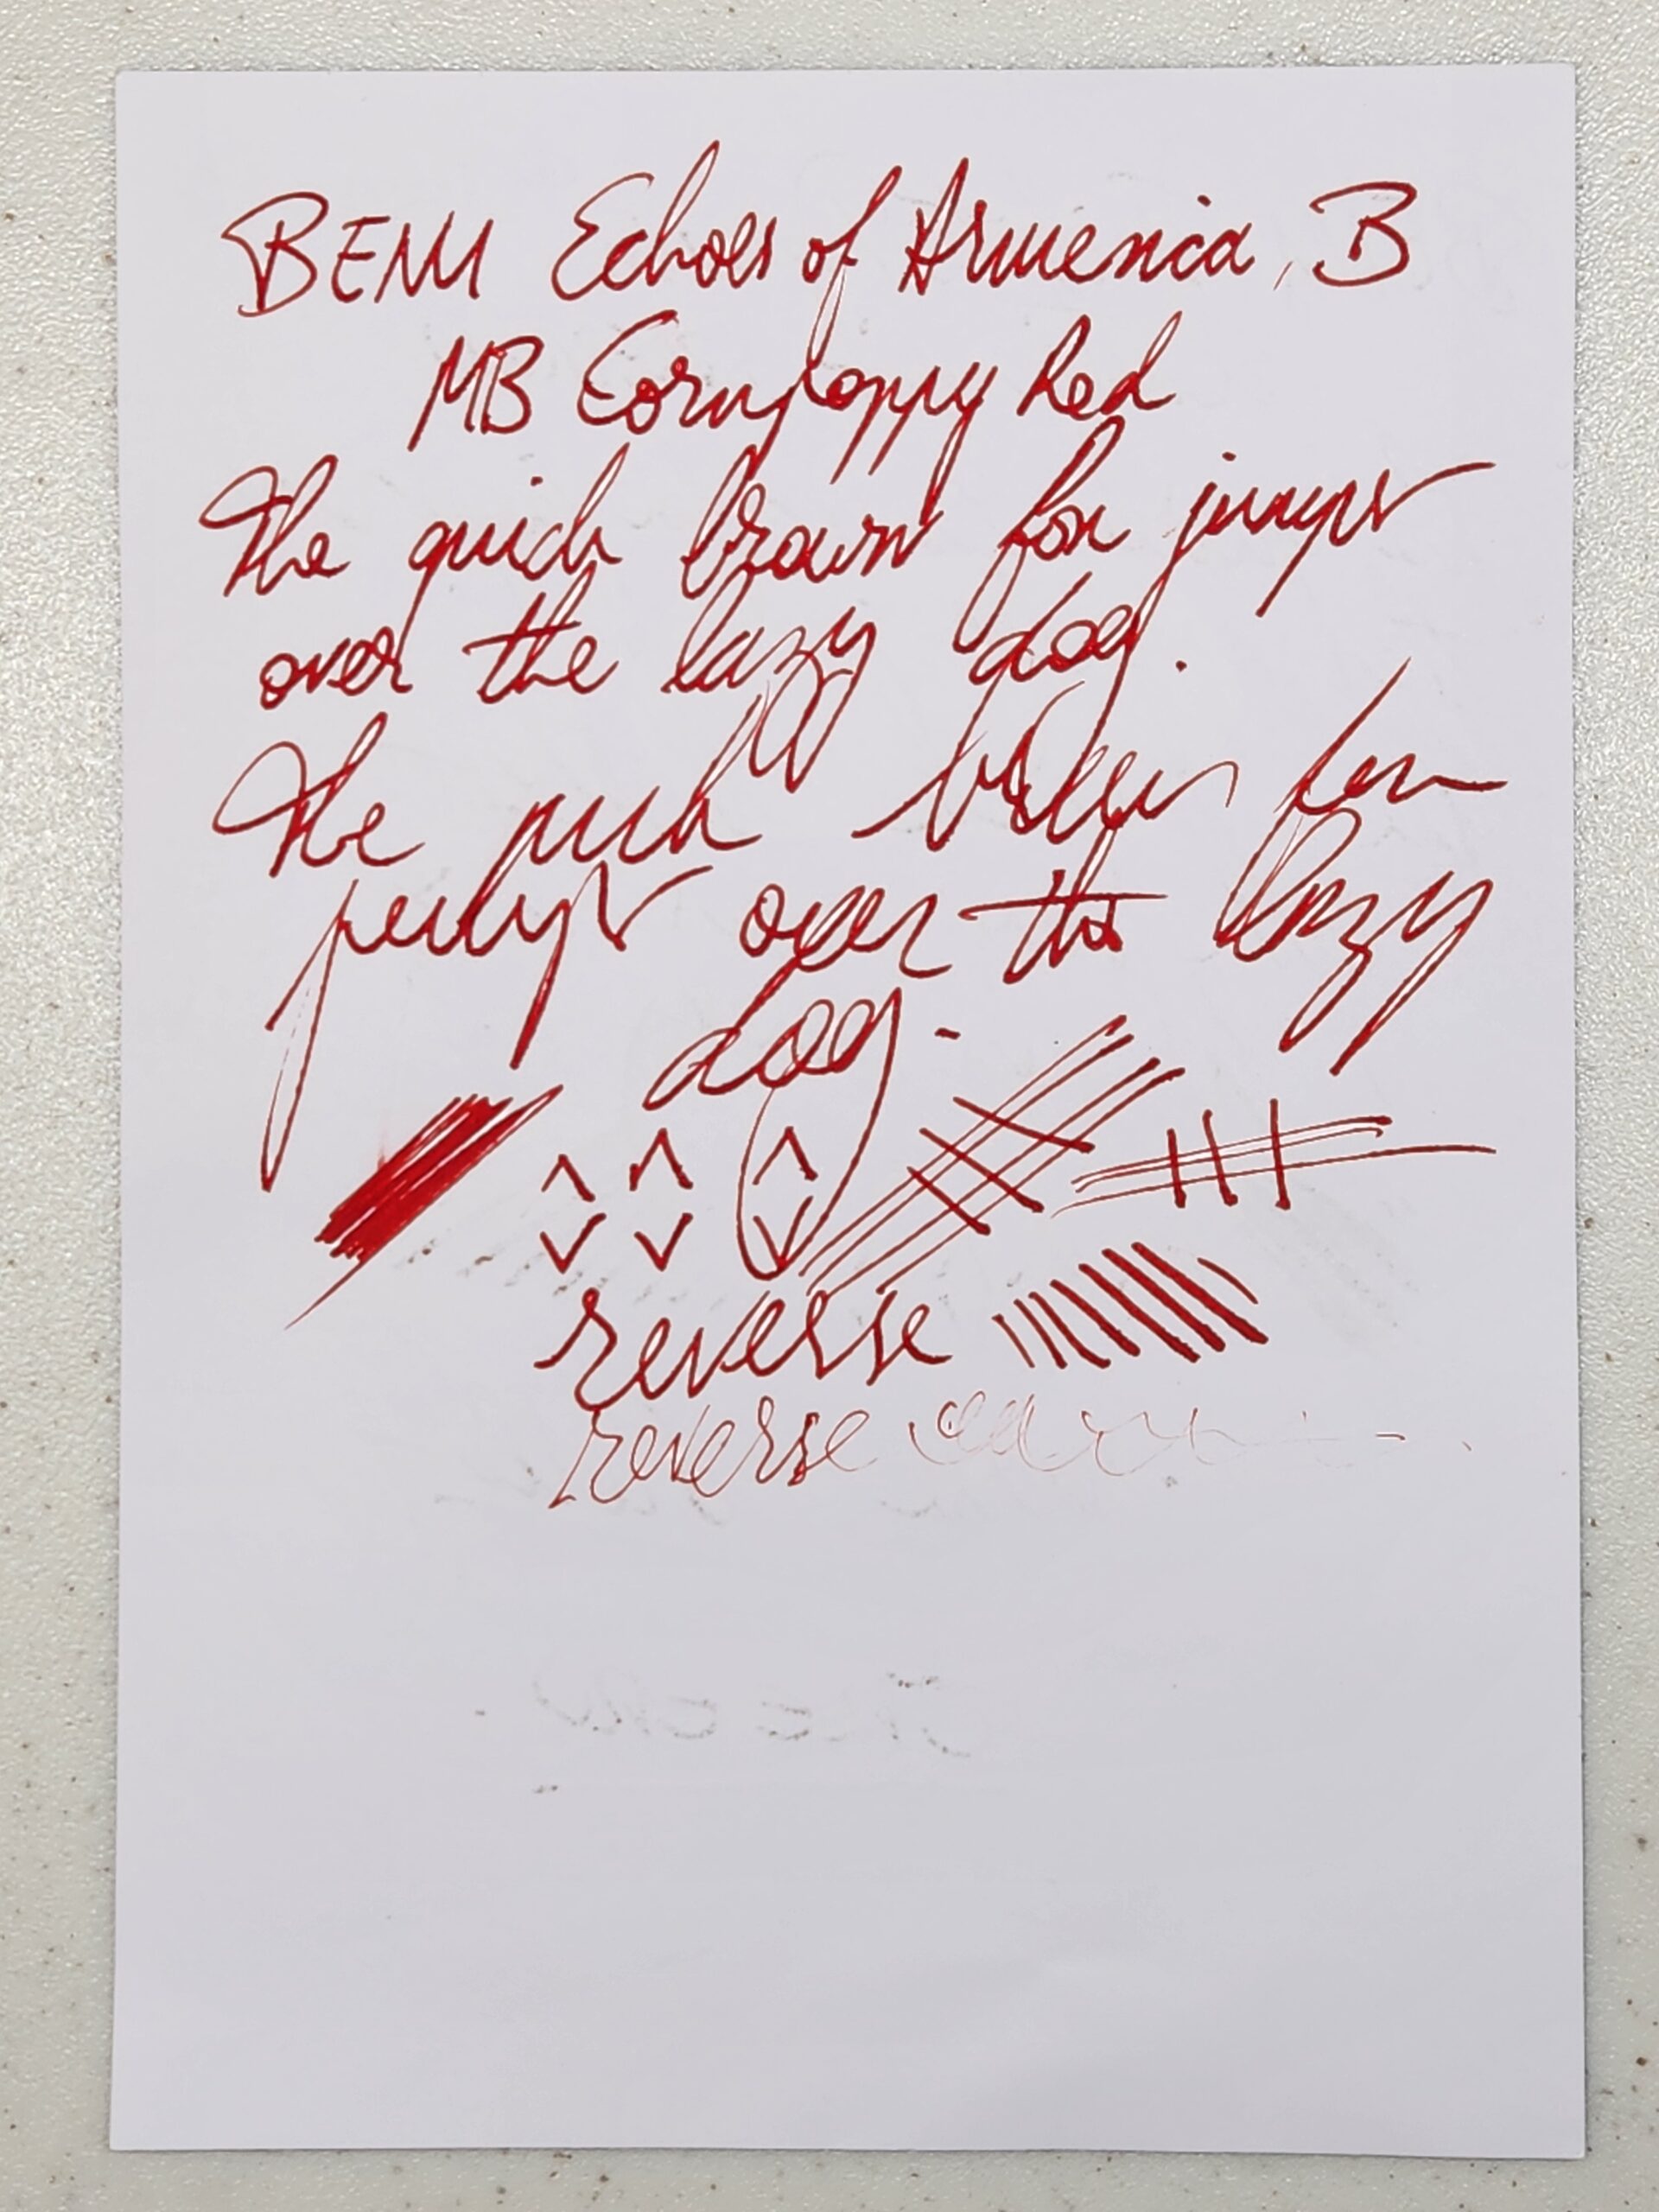 BENU Echoes of Armenia, B
MB Cornpoppy Red
The quick brown fox jumps
over the lazy dog.
The quick brown fox
jumps over the lazy
dog.
reverse
reverse